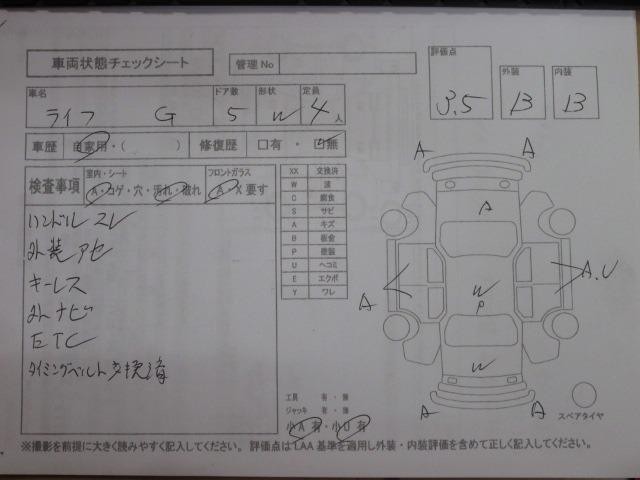 車両状態チェックシート
管理No
評価点
3.5
外装
B
内装
B
車名
ライフ G
ドア数
5
形状
W
定員
4人
車歴
自家用・( )
修復歴
口有・口無
検査事項
室内・シート
A・コゲ・穴・汚れ・破れ
フロントガラス
A・X 要す
ハンドルスレ
外装アセ
キーレス
ETC
タイミングベルト交換済
XX 交換済
W 波
C 腐食
S サビ
A キズ
B 板金
P 塗装
U ヘコミ
E エクボ
Y ワレ
A A
A
A
A.U
W
P
W
A A
工具 有・無
ジャッキ 有・無
小A有・小U有
スペアタイヤ
※撮影を前提に大きく読みやすく記入してください。評価点はLAA基準を適用し外装・内装評価を含めて正しく記入してください。